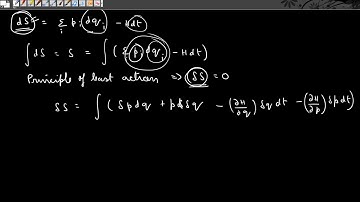 dS = Σ_i p_i dq_i - H dt
∫ dS = S = ∫ ( Σ_i p_i dq_i - H dt )
Principle of least action ⇒ δS = 0
δS = ∫ ( δp dq + p dδq - (∂H/∂q) δq dt - (∂H/∂p) δp dt )